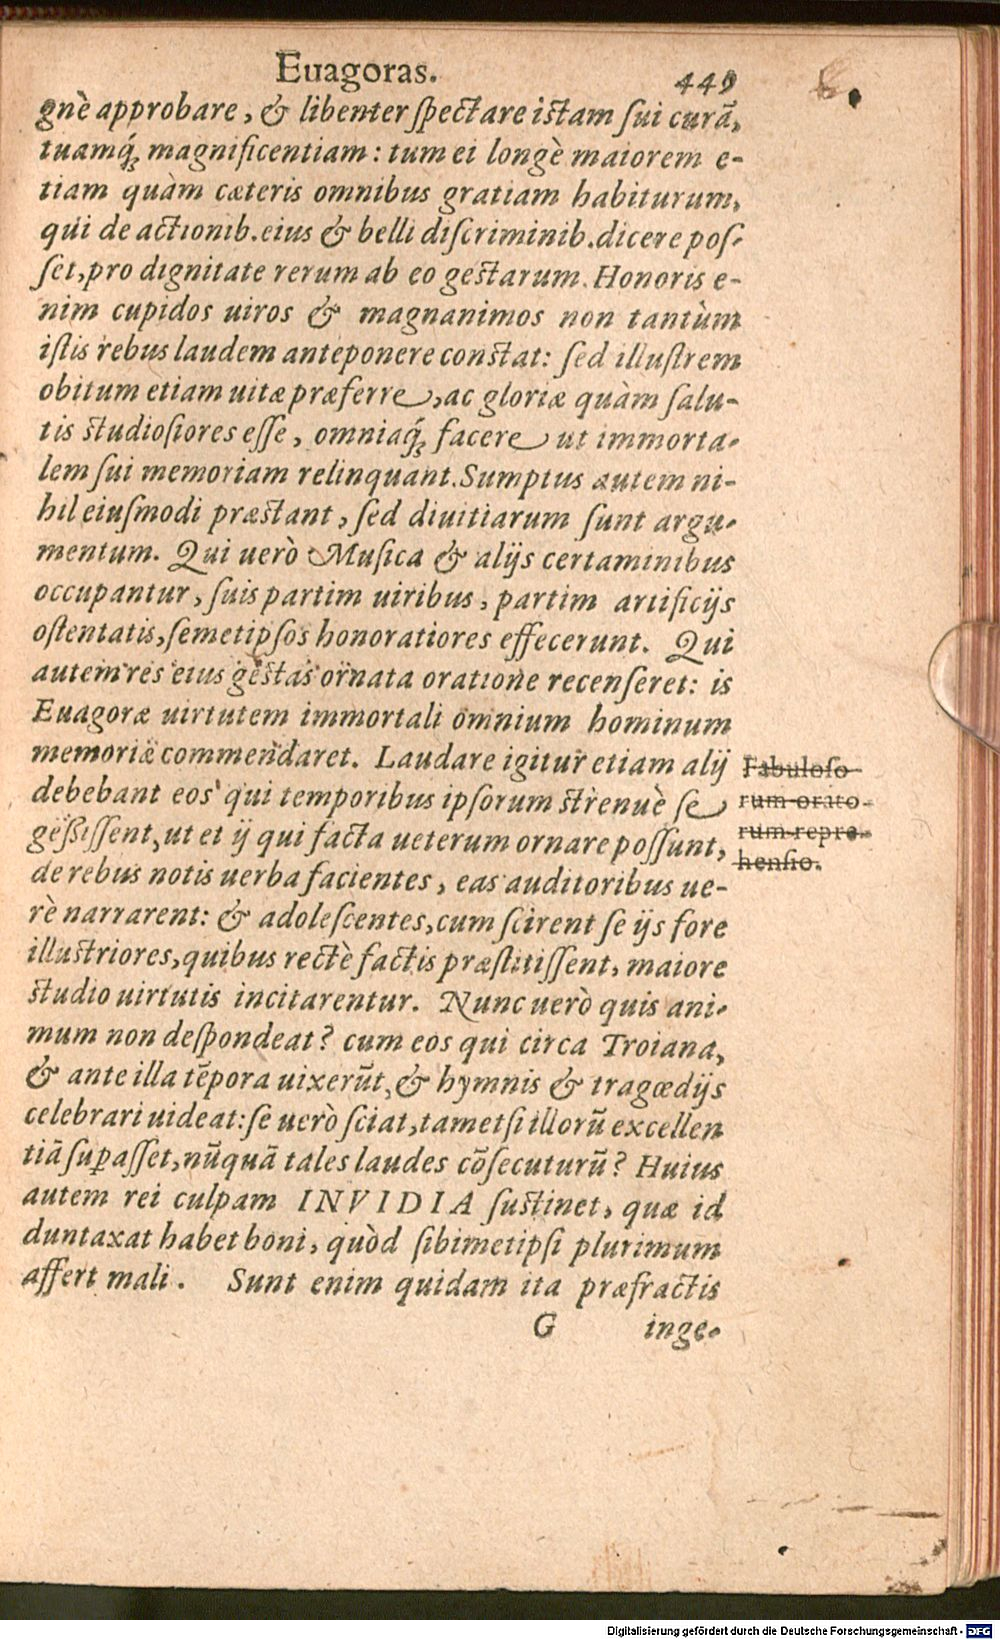 Euagoras. 449
gnè approbare, & libenter ſpectare iſtam ſui curā,
tuamq́; magnificentiam: tum ei longè maiorem e-
tiam quàm cæteris omnibus gratiam habiturum,
qui de actionib. eius & belli diſcriminib. dicere poſ-
ſet, pro dignitate rerum ab eo geſtarum. Honoris e-
nim cupidos uiros & magnanimos non tantùm
iſtis rebus laudem anteponere conſtat: ſed illuſtrem
obitum etiam uitæ præferre, ac gloriæ quàm ſalu-
tis ſtudioſiores eſſe, omniaq́; facere ut immorta-
lem ſui memoriam relinquant. Sumptus autem ni-
hil eiuſmodi præſtant, ſed diuitiarum ſunt argu-
mentum. Qui uerò Muſica & alijs certaminibus
occupantur, ſuis partim uiribus, partim artificijs
oſtentatis, ſemetipſos honoratiores effecerunt. Qui
autem res eius geſtas ornata oratione recenſeret: is
Euagoræ uirtutem immortali omnium hominum
memoriæ commendaret. Laudare igitur etiam alij
debebant eos qui temporibus ipſorum ſtrenuè ſe
geßiſſent, ut et ij qui facta ueterum ornare poſſunt,
de rebus notis uerba facientes, eas auditoribus ue-
rè narrarent: & adoleſcentes, cum ſcirent ſe ijs fore
illuſtriores, quibus rectè factis præſtitiſſent, maiore
ſtudio uirtutis incitarentur. Nunc uerò quis ani-
mum non deſpondeat? cum eos qui circa Troiana,
& ante illa tēpora uixerūt, & hymnis & tragœdijs
celebrari uideat: ſe uerò ſciat, tametſi illorū excellen
tiā ſuꝑaſſet, nūquā tales laudes cōſecuturū? Huius
autem rei culpam INVIDIA ſuſtinet, quæ id
duntaxat habet boni, quòd ſibimetipſi plurimum
affert mali. Sunt enim quidam ita præfractis
G inge-
Fabuloſo
rum orato-
rum repre-
henſio.
Digitalisierung gefördert durch die Deutsche Forschungsgemeinschaft - DFG